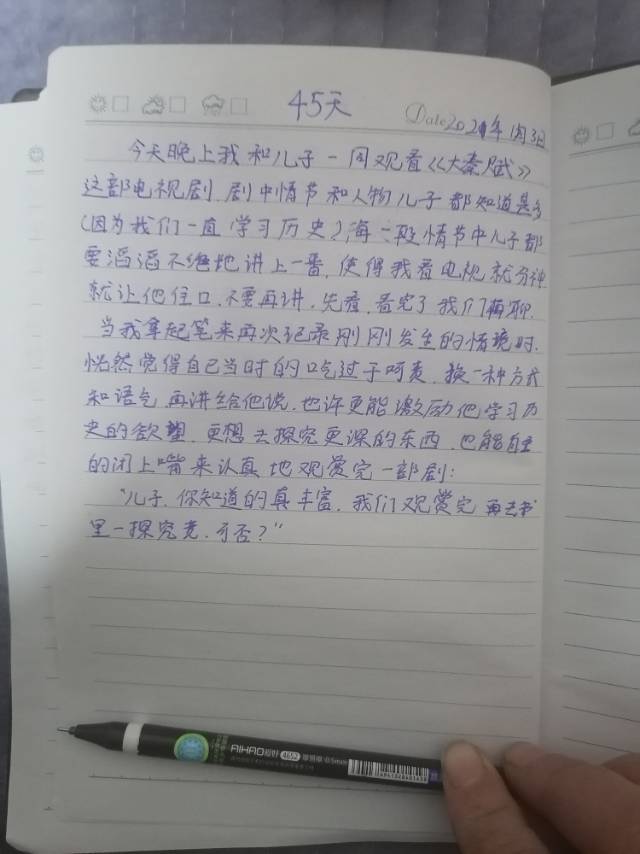 45天
Date 2021年1月3日
今天晚上我和儿子一同观看《大秦赋》
这部电视剧.剧中情节和人物儿子都知道是
(因为我们一直学习历史),每一段情节中儿子都
要滔滔不绝地讲上一番,使得我看电视就分神
就让他住口,不要再讲,先看,看完了我们再聊.
当我拿起笔来再次记录刚刚发生的情境时.
恍然觉得自己当时的口吃过于呵责,换一种方式
和语气,再讲给他说.也许更能激励他学习历
史的欲望,更想去探究更深的东西,也能自主
的闭上嘴来认真地观赏完一部剧:
"儿子,你知道的真丰富,我们观赏完再去书
里一探究竟.可否?"
AIHAO 爱好 4652 0.5mm